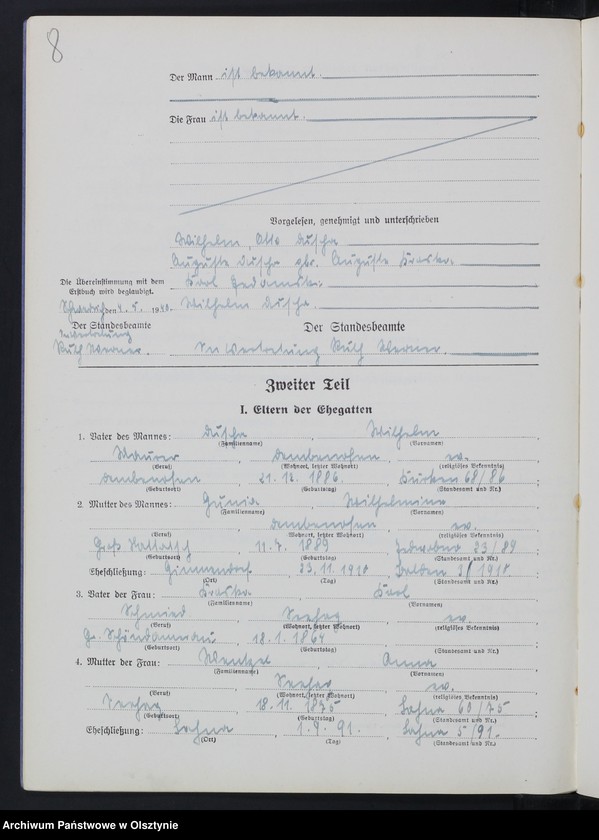 8
Der Mann ist bekannt.
Die Frau ist bekannt.
Vorgelesen, genehmigt und unterschrieben
Wilhelm, Otto Duscha
Auguste Duscha geb. Auguste Kraska.
Die Übereinstimmung mit dem
Erstbuch wird beglaubigt.
Karl
den 4. 5. 1940.
Wilhelm Duscha.
Der Standesbeamte
Der Standesbeamte
In Vertretung
Ruth Werner.
In Vertretung Ruth Werner.
Zweiter Teil
I. Eltern der Ehegatten
1. Vater des Mannes: Duscha, Wilhelm
(Familienname) (Vornamen)
Maurer, Dembenofen, ev.
(Beruf) (Wohnort, letzter Wohnort) (religiöses Bekenntnis)
Dembenofen 21. 12. 1886. Kurken 68/86;
(Geburtsort) (Geburtstag) (Standesamt und Nr.)
2. Mutter des Mannes: Gunia, Wilhelmine
(Familienname) (Vornamen)
Dembenofen, ev.
(Beruf) Wohnort, letzter Wohnort) (religiöses Bekenntnis)
Groß 11. 7. 1889 Jedwabno 23/89;
(Geburtsort) (Geburtstag) (Standesamt und Nr.)
Eheschließung: Gimmendorf 23. 11. 1910 3/1910.
(Ort) (Tag) (Standesamt und Nr.)
3. Vater der Frau: Kraska, Karl
(Familienname) (Vornamen)
Schmied, Seehag, ev.
(Beruf) (Wohnort, letzter Wohnort) (religiöses Bekenntnis)
Gr. Schöndamerau, 18. 1. 1864
(Geburtsort) (Geburtstag) (Standesamt und Nr.)
4. Mutter der Frau: Wenzel, Anna
(Familienname) (Vornamen)
Seehag, ev.
(Beruf) (Wohnort, letzter Wohnort) (religiöses Bekenntnis)
Seehag, 18. 11. 1875 Lahna 60/75;
(Geburtsort) (Geburtstag) (Standesamt und Nr.)
Eheschließung: Lahna, 1. 9. 91. Lahna 5/91.
(Ort) (Tag) (Standesamt und Nr.)
Archiwum Państwowe w Olsztynie